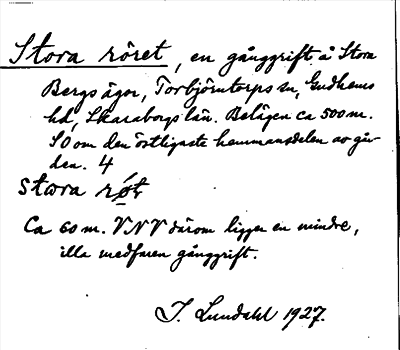 Stora röret, en gånggrift å Stora
Bergs ägor, Torbjörntorps sn, Gudhems
hd, Skaraborgs län. Belägen ca 500 m.
SO om den östligaste hemmansdelen av går
den. 4
stωra rø̄t
Ca 60 m. VNV därom ligger en mindre,
illa medfaren gånggrift.
J. Lundahl 1927.